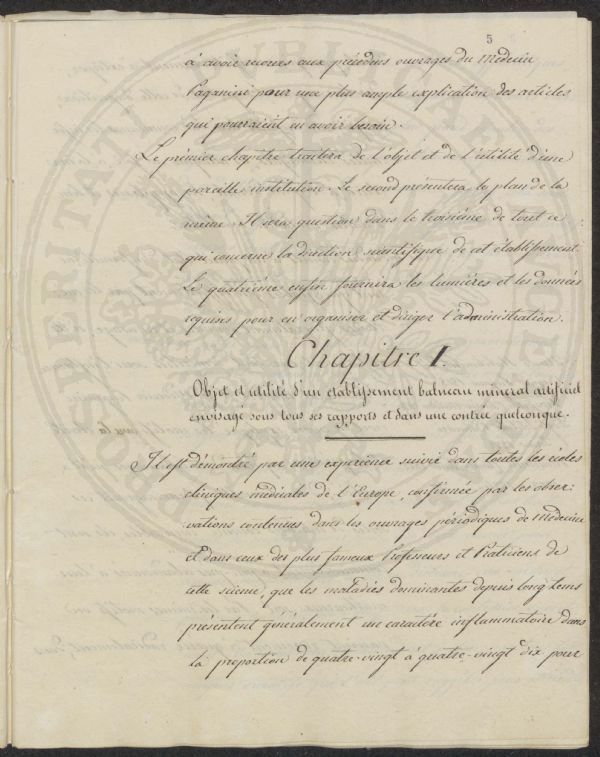 5
à avoir recours aux précédens ouvrages du Médecin
Paganini pour une plus ample explication des articles
qui pourraient en avoir besoin.
Le prémier chapitre traitera de l'objet et de l'utilité d'une
pareille institution. Le second présentera le plan de la
même. Il sera question dans le troisième de tout ce
qui concerne la direction scientifique de cet établissement.
Le quatrième enfin fournira les lumières et les données
requises pour en organiser et diriger l'administration.
Chapitre I.
Objet et utilité d'un établissement balneau minéral artificiel
envisagé sous tous ses rapports et dans une contrée quelconque.
Il est démontré par une expérience suivie dans toutes les écoles
cliniques médicales de l'Europe, confirmée par les obser:
vations contenues dans les ouvrages périodiques de Médecine
et dans ceux des plus fameux Professeurs et Praticiens de
cette science, que les maladies dominantes depuis long tems
présentent généralement un caractère inflammatoire dans
la proportion de quatre-vingt à quatre-vingt dix pour
PROSPERITATI PUBLICAE